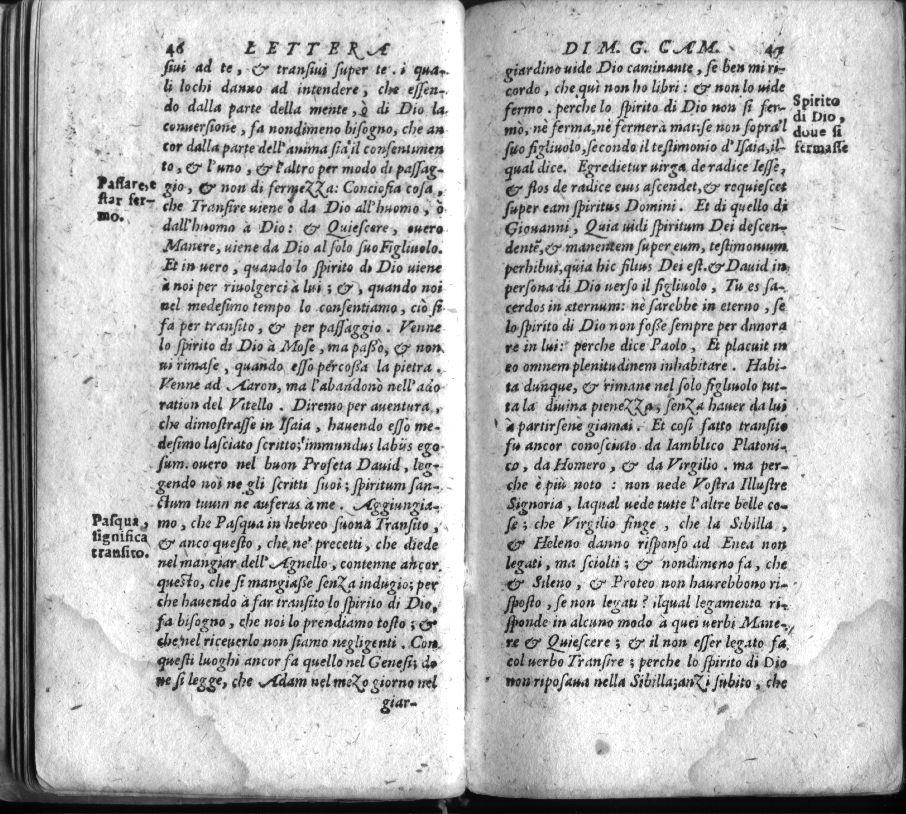 46 LETTERA
siui ad te, & transiui super te. i qua-
li lochi danno ad intendere, che essen-
do dalla parte della mente, ò di Dio la
conuersione, fa nondimeno bisogno, che an
cor dalla parte dell'anima sia il consentimen
to, & l'uno, & l'altro per modo di passag-
Passare, e
star fer-
mo.
gio, & non di fermezza: Conciosia cosa,
che Transire uiene ò da Dio all'huomo, ò
dall'huomo à Dio: & Quiescere, ouero
Manere, uiene da Dio al solo suo Figliuolo.
Et in uero, quando lo spirito di Dio uiene
à noi per riuolgerci à lui; &, quando noi
nel medesimo tempo lo consentiamo, ciò si
fa per transito, & per passaggio. Venne
lo spirito di Dio à Mose, ma passò, & non
ui rimase, quando esso percossa la pietra.
Venne ad Aaron, ma l'abandonò nell'ado
ration del Vitello. Diremo per auentura,
che dimostrasse in Isaia, hauendo esso me-
desimo lasciato scritto; immundus labijs ego
sum. ouero nel buon Profeta Dauid, leg-
gendo noi ne gli scritti suoi; spiritum san-
ctum tuum ne auferas à me. Aggiungia-
Pasqua,
significa
transito.
mo, che Pasqua in hebreo suona Transito,
& anco questo, che ne' precetti, che diede
nel mangiar dell'Agnello, contenne ancor
questo, che si mangiasse senza indugio; per
che hauendo à far transito lo spirito di Dio,
fa bisogno, che noi lo prendiamo tosto; &
che nel riceuerlo non siamo negligenti. Con
questi luoghi ancor fa quello nel Genesi; do
ue si legge, che Adam nel mezo giorno nel
giar-
DI M. G. CAM. 47
giardino uide Dio caminante, se ben mi ri-
cordo, che quì non ho libri: & non lo uide
Spirito
di Dio,
doue si
fermasse
fermo. perche lo spirito di Dio non si fer-
mò, nè ferma, nè fermerà mai: se non sopra'l
suo figliuolo, secondo il testimonio d'Isaia, il-
qual dice. Egredietur uirga de radice Iesse,
& flos de radice eius ascendet, & requiescet
super eam spiritus Domini. Et di quello di
Giouanni, Quia uidi spiritum Dei descen-
dentē, & manentem super eum, testimonium
perhibui, quia hic filius Dei est. & Dauid in
persona di Dio uerso il figliuolo, Tu es sa-
cerdos in æternum: nè sarebbe in eterno, se
lo spirito di Dio non fosse sempre per dimora
re in lui: perche dice Paolo, Et placuit in
eo omnem plenitudinem inhabitare. Habi-
ta dunque, & rimane nel solo figliuolo tut-
ta la diuina pienezza, senza hauer da lui
à partirsene giamai. Et cosi fatto transito
fu ancor conosciuto da Iamblico Platoni-
co, da Homero, & da Virgilio. ma per-
che è più noto: non uede Vostra Illustre
Signoria, laqual uede tutte l'altre belle co-
se; che Virgilio finge, che la Sibilla,
& Heleno danno risponso ad Enea non
legati, ma sciolti; & nondimeno fa, che
& Sileno, & Proteo non haurebbono ri-
sposto, se non legati? ilqual legamento ri-
sponde in alcuno modo à quei uerbi Mane-
re & Quiescere; & il non esser legato fa
col uerbo Transire; perche lo spirito di Dio
non riposaua nella Sibilla; anzi subito, che